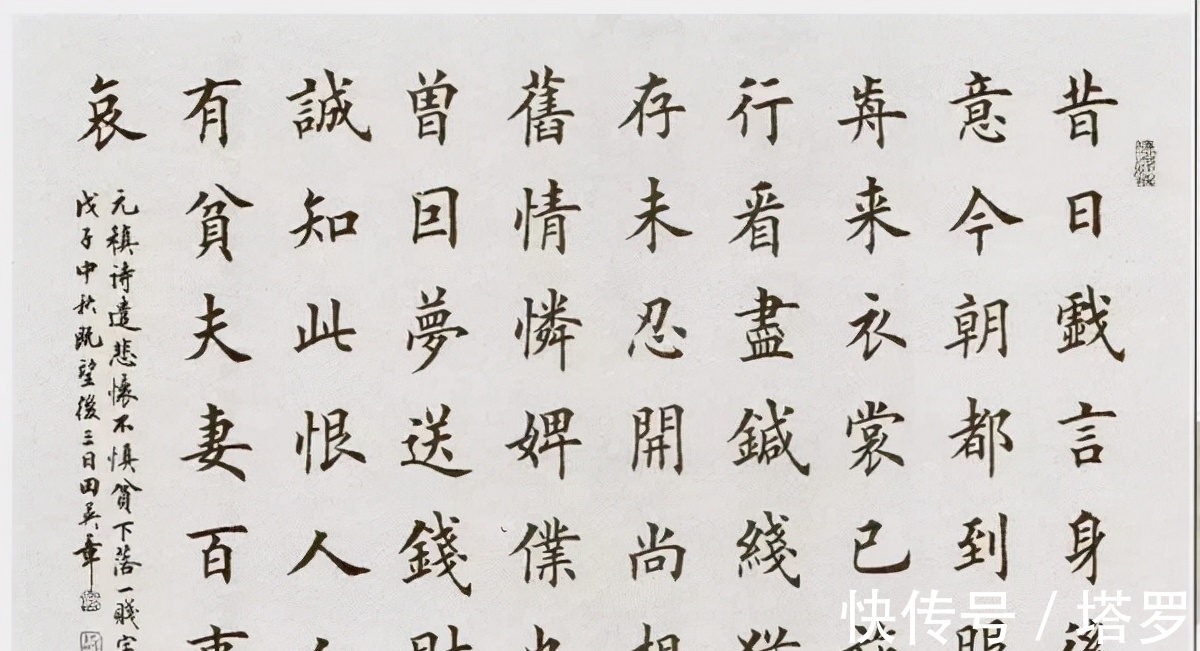 昔日戲言身後
意今朝都到眼
歬来衣裳已施
行看盡鍼綫猶
存未忍開尚想
舊情憐婢僕也
曾囙夢送錢財
誠知此恨人人
有貧夫妻百事
哀
元稹诗遣悲懷不慎貧下落一賤字
戊子中秋既望後三日田英章
快传号 / 塔罗